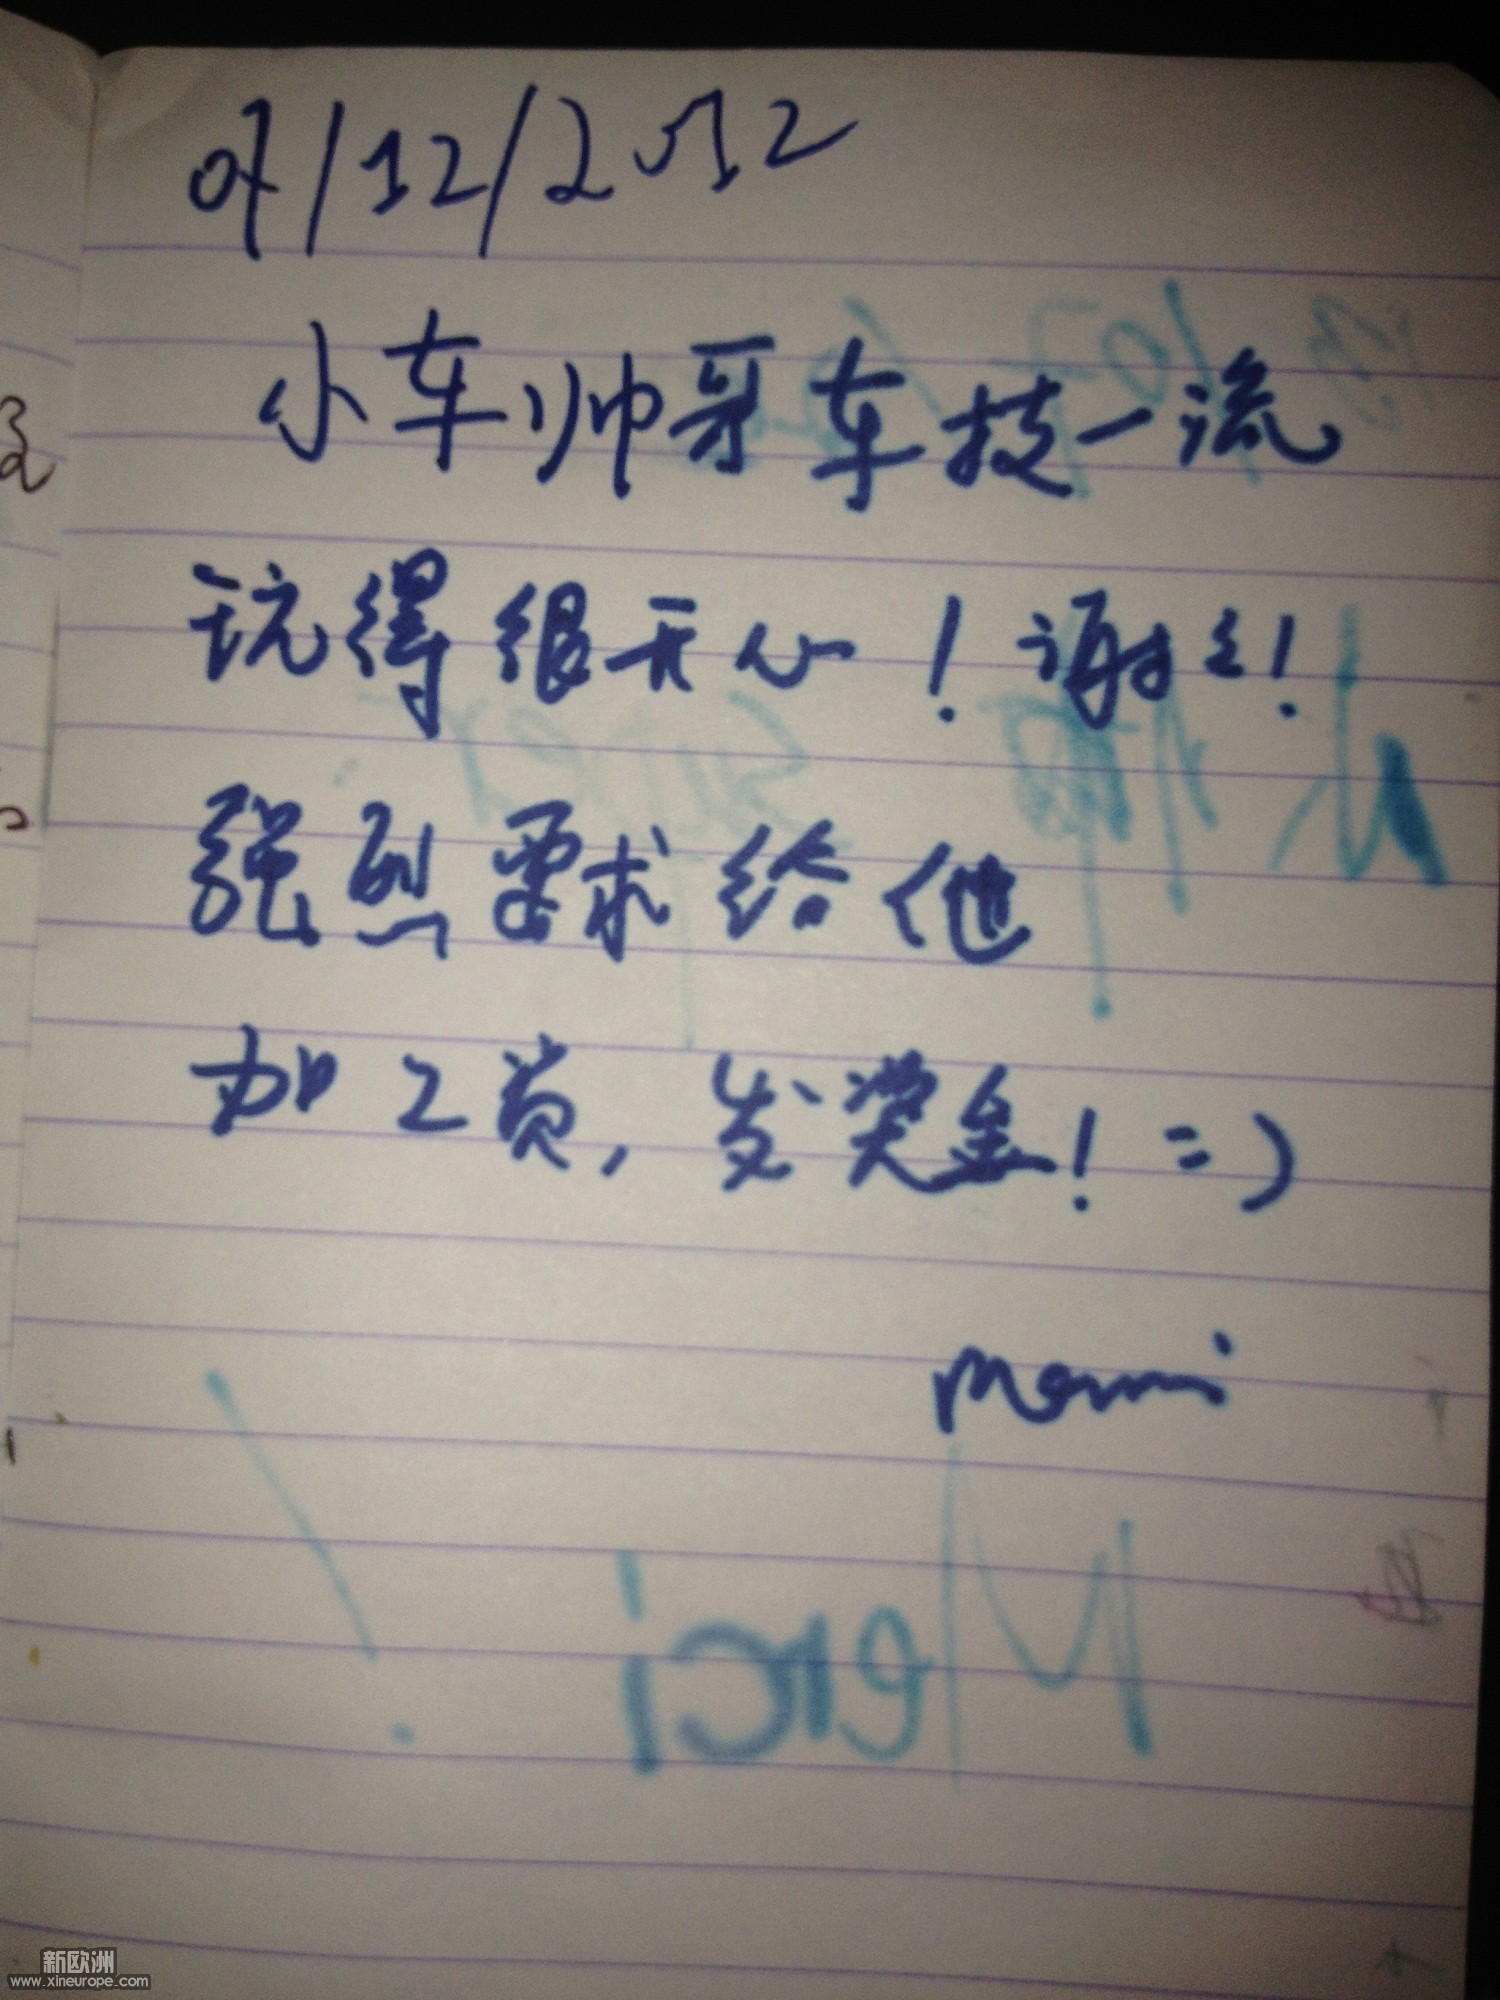 07/12/2012
小车帅哥车技一流
玩得很开心！谢谢！
强烈要求给他
加工资，发奖金！=)
Merci !
新欧洲
www.xineurope.com